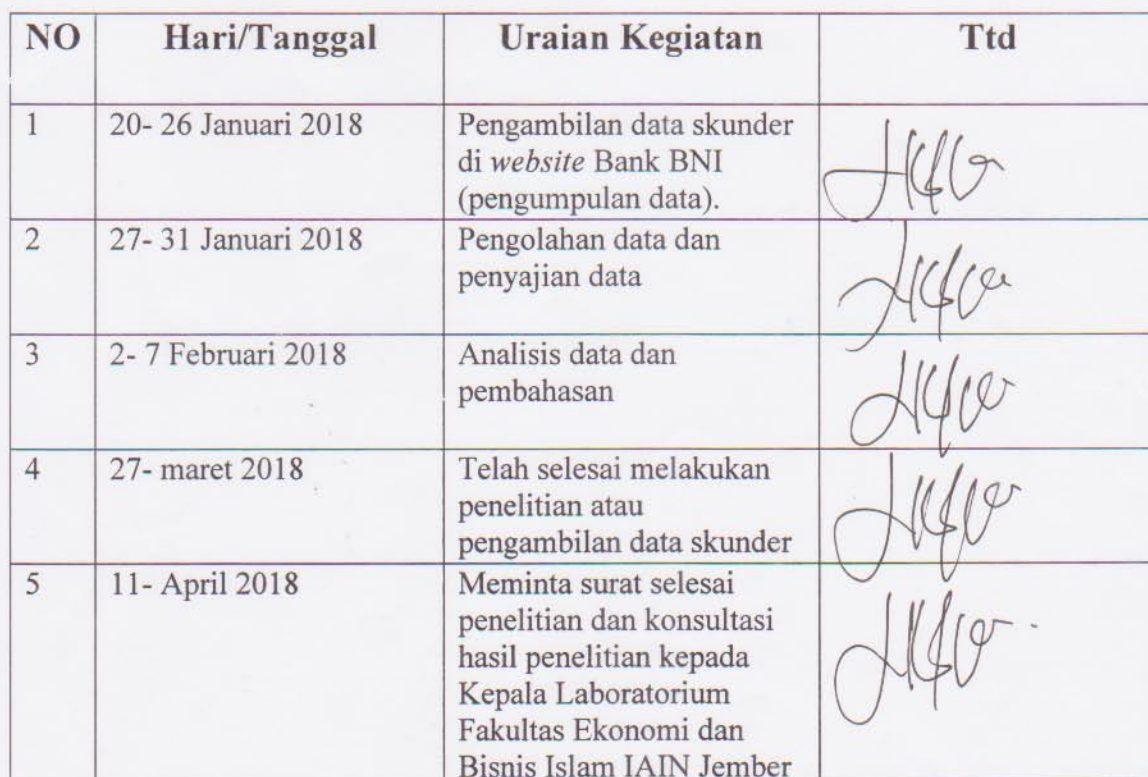 NO Hari/Tanggal Uraian Kegiatan Ttd
1 20- 26 Januari 2018 Pengambilan data skunder
di website Bank BNI
(pengumpulan data).
2 27- 31 Januari 2018 Pengolahan data dan
penyajian data
3 2- 7 Februari 2018 Analisis data dan
pembahasan
4 27- maret 2018 Telah selesai melakukan
penelitian atau
pengambilan data skunder
5 11- April 2018 Meminta surat selesai
penelitian dan konsultasi
hasil penelitian kepada
Kepala Laboratorium
Fakultas Ekonomi dan
Bisnis Islam IAIN Jember